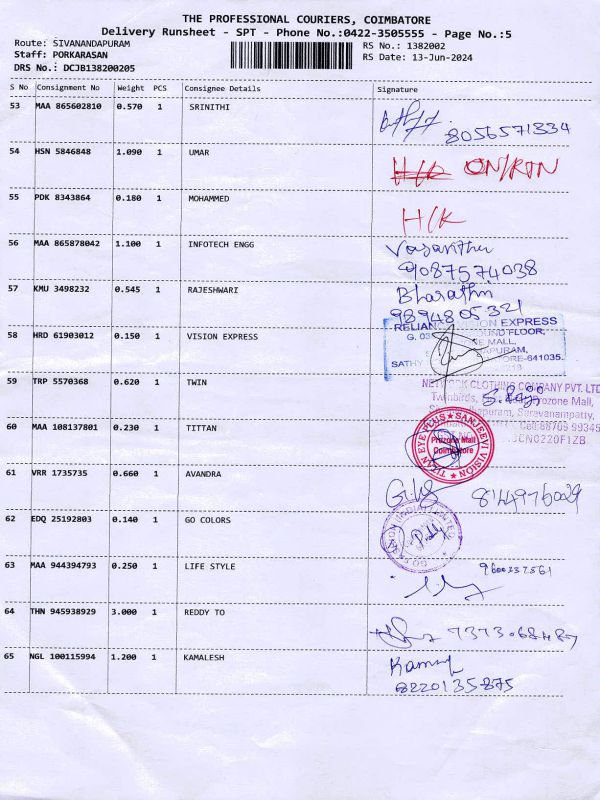 THE PROFESSIONAL COURIERS, COIMBATORE
Delivery Runsheet - SPT - Phone No.:0422-3505555 - Page No.:5
Route: SIVANANDAPURAM
RS No.: 1382002
Staff: PORKARASAN
RS Date: 13-Jun-2024
DRS No.: DCJB138200205
S No Consignment No Weight PCS Consignee Details Signature
53 MAA 865602810 0.570 1 SRINITHI
8056571334
54 HSN 5846848 1.090 1 UMAR
55 PDK 8343864 0.180 1 MOHAMMED
H/K
56 MAA 865878042 1.100 1 INFOTECH ENGG
9087574038
57 KMU 3498232 0.545 1 RAJESHWARI
Bharathi
9894805321
58 HRD 61903012 0.150 1 VISION EXPRESS
RELIANCE VISION EXPRESS
GROUND FLOOR,
MALL,
SATHY COIMBATORE-641035.
59 TRP 5570368 0.620 1 TWIN
NETWORK CLOTHING COMPANY PVT. LTD
Twinbirds, Prozone Mall,
Saravanampatty,
60 MAA 108137801 0.230 1 TITTAN
TITAN EYE PLUS ★ SANJEEVI VISION ★
Prozone Mall
Coimbatore
61 VRR 1735735 0.660 1 AVANDRA
62 EDQ 25192803 0.140 1 GO COLORS
63 MAA 944394793 0.250 1 LIFE STYLE
9600332561
64 THN 945938929 3.000 1 REDDY TO
7373068487
65 NGL 100115994 1.200 1 KAMALESH
8220135875